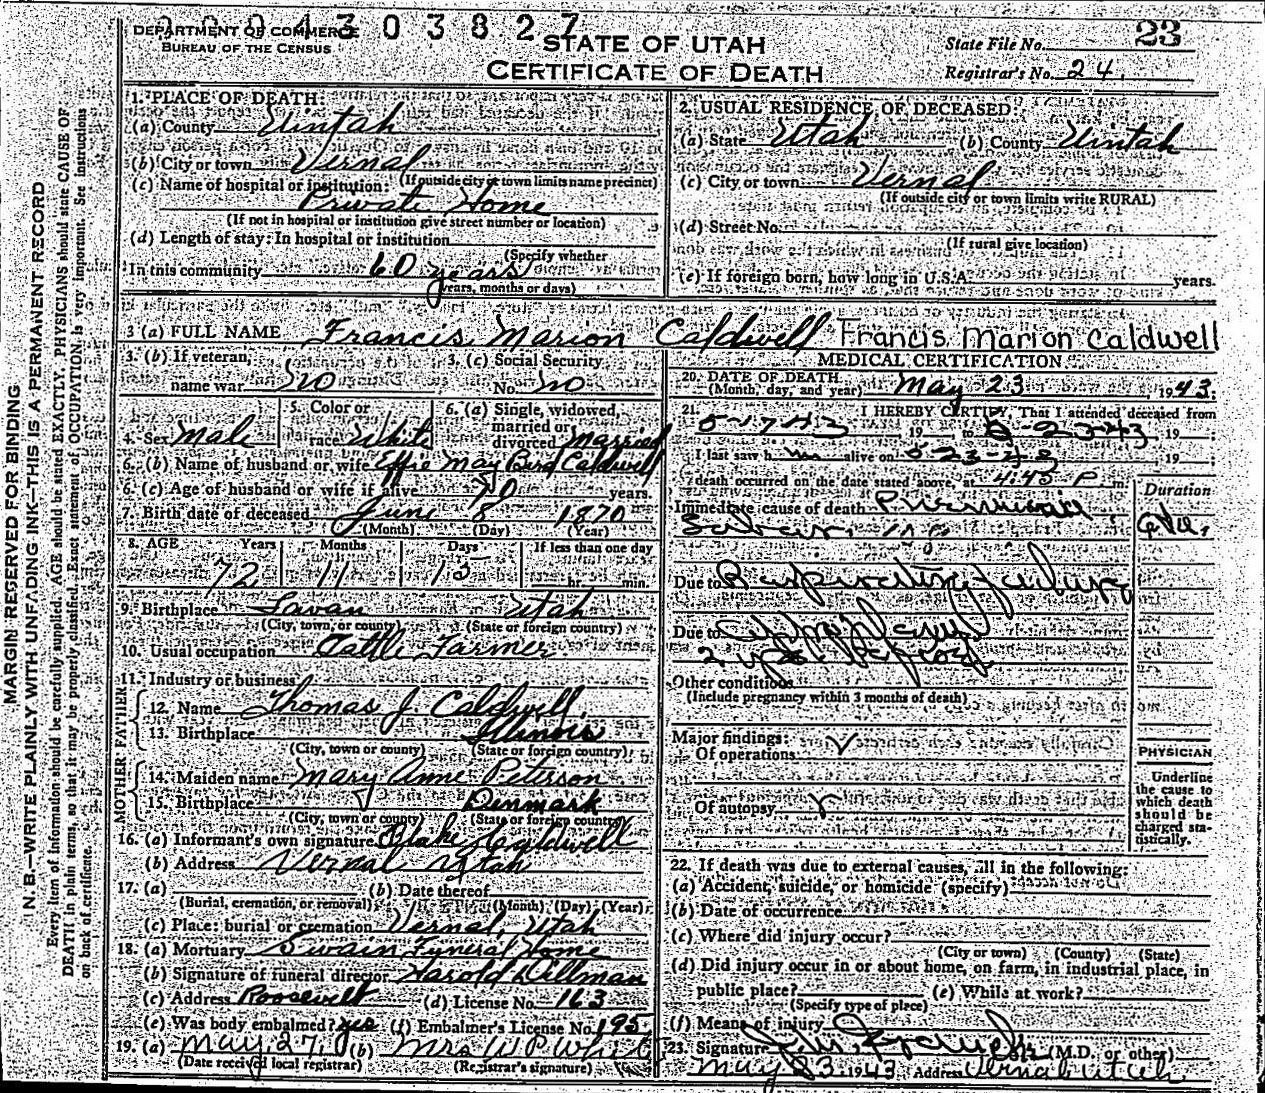 2004303827
DEPARTMENT OF COMMERCE
BUREAU OF THE CENSUS
STATE OF UTAH
CERTIFICATE OF DEATH
State File No. 23
Registrar's No. 24.
MARGIN RESERVED FOR BINDING
N. B.—WRITE PLAINLY WITH UNFADING INK—THIS IS A PERMANENT RECORD
Every item of information should be carefully supplied. AGE should be stated EXACTLY. PHYSICIANS should state CAUSE OF
DEATH in plain terms, so that it may be properly classified. Exact statement of OCCUPATION is very important. See instructions
on back of certificate.
1. PLACE OF DEATH:
(a) County Uintah
(b) City or town Vernal
(If outside city or town limits name precinct)
(c) Name of hospital or institution:
Private Home
(If not in hospital or institution give street number or location)
(d) Length of stay: In hospital or institution
(Specify whether
In this community 60 years
years, months or days)
2. USUAL RESIDENCE OF DECEASED:
(a) State Utah (b) County Uintah
(c) City or town Vernal
(If outside city or town limits write RURAL)
(d) Street No.
(If rural give location)
(e) If foreign born, how long in U.S.A. years.
3 (a) FULL NAME Francis Marion Caldwell Francis Marion Caldwell
3. (b) If veteran, name war no
3. (c) Social Security No. no
4. Sex Male
5. Color or race White
6. (a) Single, widowed, married or divorced Married
6. (b) Name of husband or wife Effie May Bird Caldwell
6. (c) Age of husband or wife if alive 70 years.
7. Birth date of deceased June 8 1870
(Month) (Day) (Year)
8. AGE Years Months Days If less than one day
72 11 15 hr. min.
9. Birthplace Levan Utah
(City, town, or county) (State or foreign country)
10. Usual occupation Cattle Farmer
11. Industry or business
FATHER
12. Name Thomas J. Caldwell
13. Birthplace Illinois
(City, town or county) (State or foreign country)
MOTHER
14. Maiden name Mary Anne Peterson
15. Birthplace Denmark
(City, town or county) (State or foreign country)
16. (a) Informant's own signature Blake Caldwell
(b) Address Vernal Utah
17. (a) (b) Date thereof
(Burial, cremation, or removal) (Month) (Day) (Year)
(c) Place: burial or cremation Vernal, Utah
18. (a) Mortuary Swain Funeral Home
(b) Signature of funeral director Harold Dillman
(c) Address Roosevelt (d) License No. 163
(e) Was body embalmed? yes (f) Embalmer's License No. 195
19. (a) May 27, (b) Mrs W P White
(Date received local registrar) (Registrar's signature)
MEDICAL CERTIFICATION
20. DATE OF DEATH May 23 1943
(Month, day, and year)
21. I HEREBY CERTIFY, That I attended deceased from
5-17-43 19 to 5-23-43 19
I last saw him alive on 5-23-43 19
death occurred on the date stated above, at 4:45 P m.
Duration
Immediate cause of death Pneumonia
Due to Respiratory failure
Due to
2 yrs.
Other conditions
(Include pregnancy within 3 months of death)
Major findings:
Of operations
Of autopsy
PHYSICIAN
Underline
the cause to
which death
should be
charged sta-
tistically.
22. If death was due to external causes, fill in the following:
(a) Accident, suicide, or homicide (specify)
(b) Date of occurrence
(c) Where did injury occur?
(City or town) (County) (State)
(d) Did injury occur in or about home, on farm, in industrial place, in
public place? (e) While at work?
(Specify type of place)
(f) Means of injury
23. Signature (M.D. or other)
May 23 1943 Address Vernal Utah